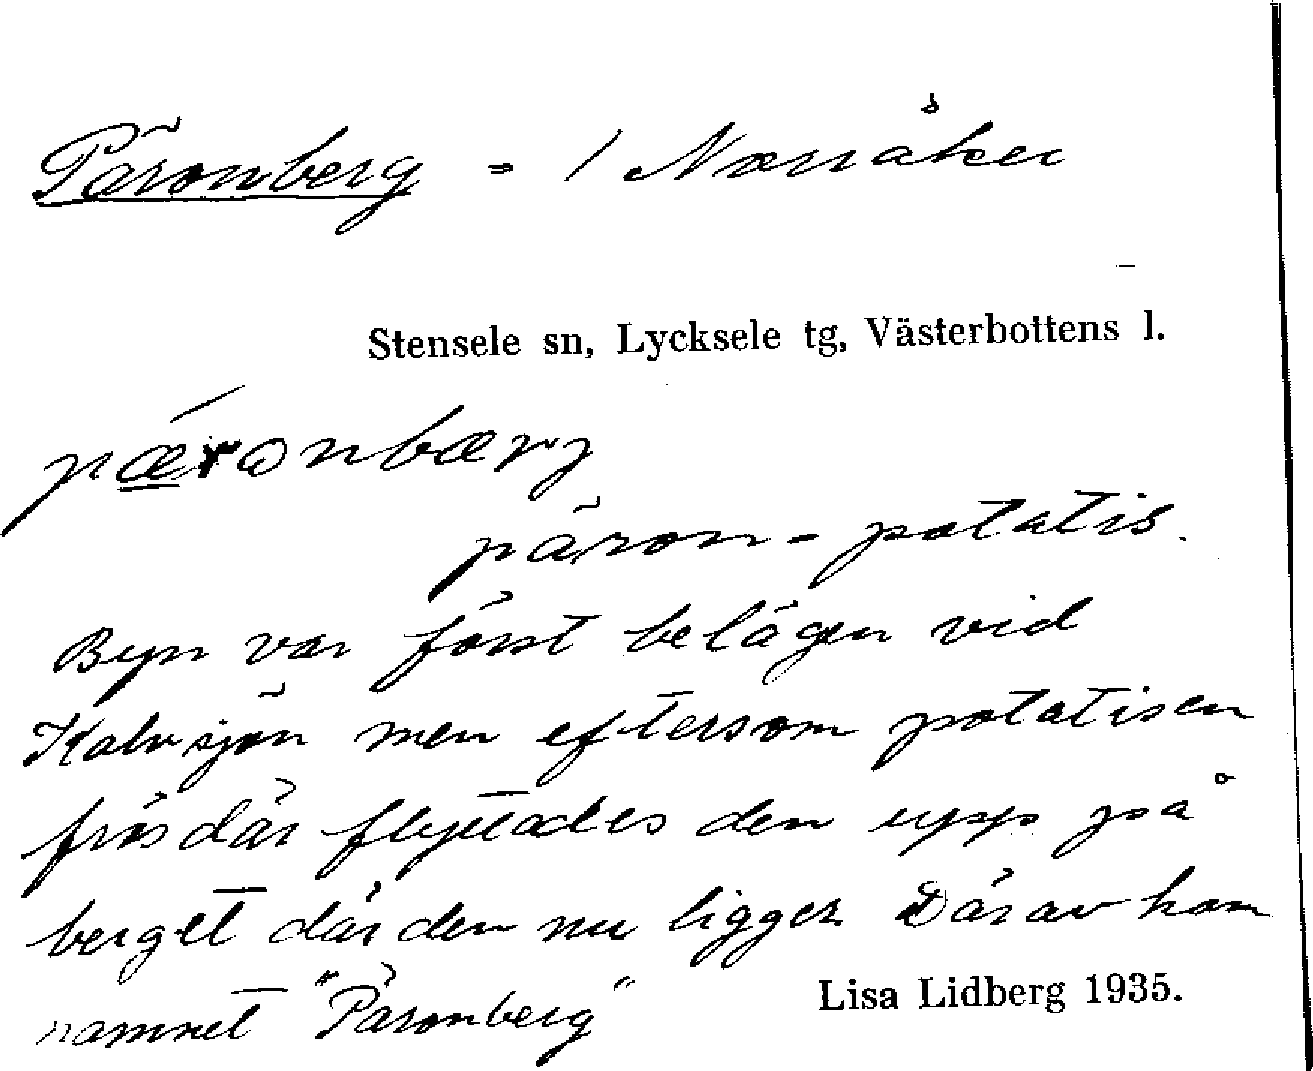 Päronberg = / Næsåker
Stensele sn, Lycksele tg, Västerbottens l.
pæronbærj
päron = potatis.
Byn var först belägen vid
Kalvsjön men eftersom potatisen
frös där flyttades den upp på
berget där den nu ligger. Därav kom
namnet "Päronberg"
Lisa Lidberg 1935.